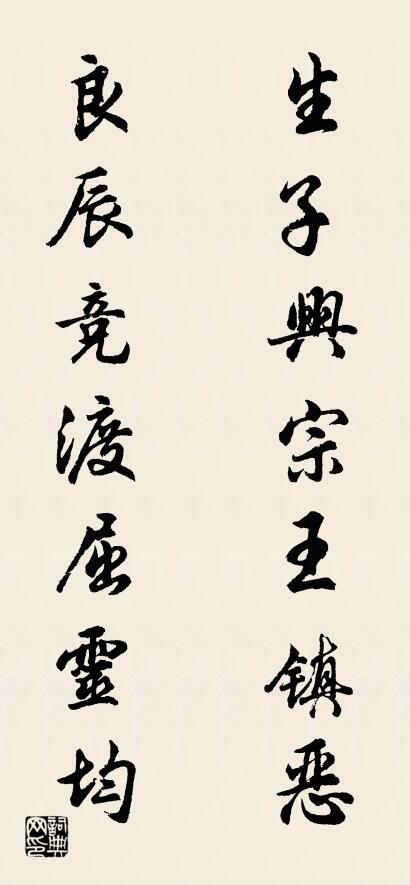 生子興宗王镇恶
良辰竞渡屈靈均
詞典网印